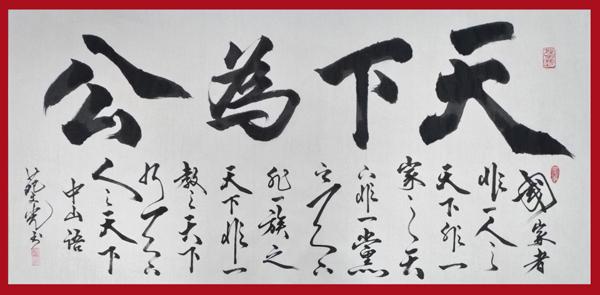 天下為公
國家者
非一人之
天下非一
家之天
下非一黨
之天下
非一族之
天下非一
教之天下
乃天下
人之天下
中山語